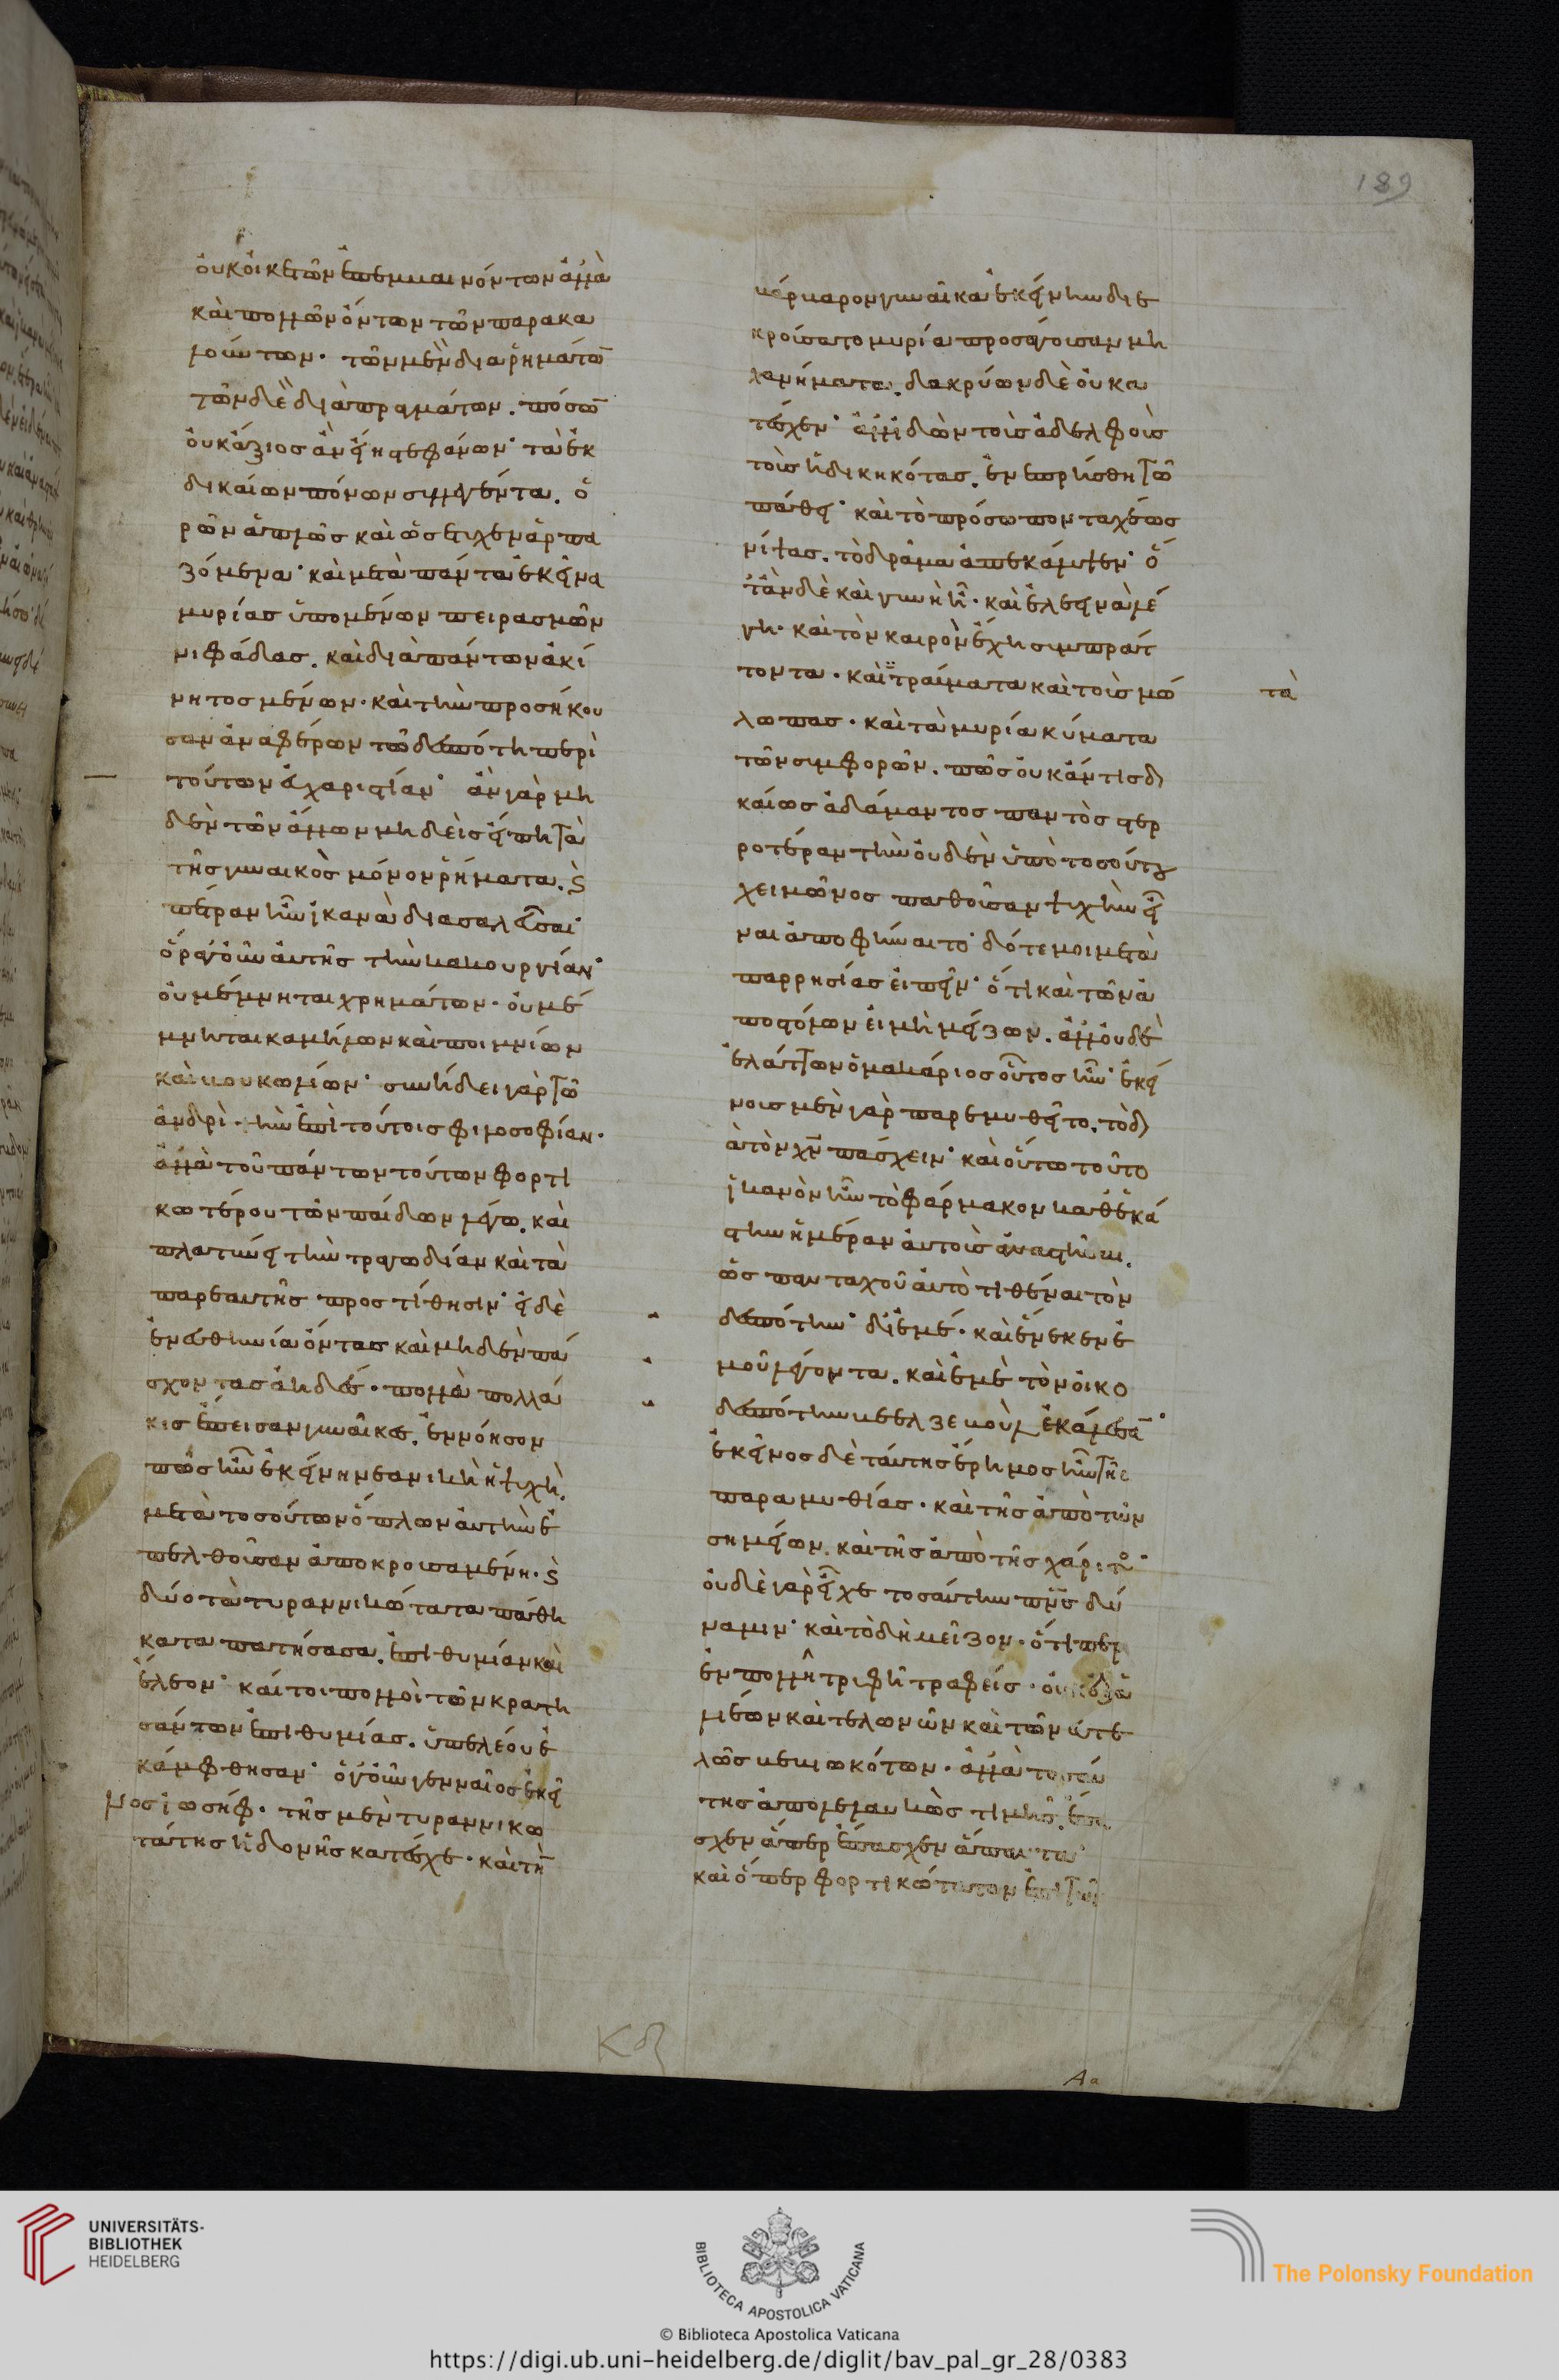 οὐκ οἰκετῶν ἐπεμβαινόντων ἀλλὰ
καὶ πολλῶν ὄντων τῶν παρακα
λούντων· τῶν μὲν διὰ ῥημάτων
τῶν δὲ διὰ πραγμάτων. πόσων
οὐκ ἄξιος ἂν εἴη στεφάνων· τὰ ἐκ
δικαίων πόνων συλλεγέντα. ὁ
ρῶν ἁπλῶς καὶ ὡς ἔτυχεν ἁρπα
ζόμενα· καὶ μετὰ πάντα ἐκεῖνα
μυρίας ὑπομένων πειρασμῶν
νιφάδας. καὶ διὰ πάντων ἀκί
νητος μένων· καὶ τὴν προσήκου
σαν ἀναφέρων τῷ δεσπότῃ περὶ
τούτων εὐχαριστίαν· ἂν γὰρ μη
δὲν τῶν ἄλλων μηδεὶς εἴπῃ τὰ
τῆς γυναικὸς μόνον ῥήματα. καὶ
πέτραν ἦν ἱκανὰ διασαλεῦσαι·
ὅρα γοῦν αὐτῆς τὴν κακουργίαν·
οὐ μέμνηται χρημάτων· οὐ μέ
μνηται καμήλων καὶ ποιμνίων
καὶ βουκολίων· συνήδει γὰρ τῶ
ἀνδρὶ· τὴν ἐπὶ τούτοις φιλοσοφίαν·
ἀλλὰ τοῦ πάντων τούτων φορτι
κωτέρου τῶν παίδων λέγω. καὶ
πλατύνει τὴν τραγωδίαν καὶ τὰ
παρεαυτῆς προστίθησιν· εἰ δὲ
ἐν εὐθηνία ὄντας καὶ μηδὲν πά
σχοντας ἀηδές· πολλὰ πολλά
κις ἔπεισαν γυναῖκες. ἐννόησον
πῶς ἦν ἐκείνη νεανικὴ ἡ ψυχὴ.
μετὰ τοσούτων ὅπλων αὐτὴν ἐ
πελθοῦσαν ἀποκρουσαμένη. καὶ
δύο τὰ τυραννικώτατα πάθη
καταπατήσασα. ἐπιθυμίαν καὶ
ἔλεον· καίτοι πολλοὶ τῶν κρατη
σάντων ἐπιθυμίας. ὑπελέου ἐ
κάμφθησαν· ὁ γοῦν γενναῖος ἐκεῖ
νος ἰωσήφ. τῆς μὲν τυραννικω
τάτης ἡδονῆς κατέσχε· καὶ τὴν
189
βάρβαρον γυναῖκα ἐκείνην διε
κρούσατο μυρία προσάγουσαν μη
χανήματα. δακρύων δὲ οὐ κα
τέσχεν· ἀλλ ἰδὼν τοὺς ἀδελφοὺς
τοὺς ἠδικηκότας. ἐνεπρήσθη τῶ
πάθει· καὶ τὸ πρόσωπον ταχέως
ῥίψας. τὸ δρᾶμα ἀπεκάλυψεν· ὅ
τὰν δὲ καὶ γυνὴ ἦ· καὶ ἐλεεινὰ λέ
γη· καὶ τὸν καιρὸν ἔχη συμπράτ
τοντα· καὶ τραύματα καὶ τοὺς μώ
τὰ
λωπας· καὶ τὰ μυρία κύματα
τῶν συμφορῶν. πῶς οὐκ ἄν τις δι
καίως ἀδάμαντος παντὸς στερ
ροτέραν τὴν οὐδὲν ὑπὸ τοσούτου
χειμῶνος παθοῦσαν ψυχὴν εἶ
ναι ἀποφήναιτο· δότε μοι μετὰ
παρρησίας εἰπεῖν· ὅτι καὶ τῶν ἀ
ποστόλων εἰ μὴ μείζων. ἀλλ οὐδὲ
ἐλάττων ὁ μακάριος οὗτος ἦν· ἐκεί
νοις μὲν γὰρ παρεμυθεῖτο. τὸ δι
ὰ τὸν χν πάσχειν· καὶ οὕτω τοῦτο
ἱκανὸν ἦν τὸ φάρμακον καθεκά
στην ἡμέραν αὐτοὺς ἀναστῆσαι.
ὡς πανταχοῦ αὐτὸ τιθέναι τὸν
δεσπότην· δι ἐμέ· καὶ ἕνεκεν ἐ
μοῦ λέγοντα. καὶ ἐμὲ τὸν οἰκο
δεσπότην βεελζεβοὺλ ἐκάλεσαν·
ἐκεῖνος δὲ ταύτης ἔρημος ἦν τῆς
παραμυθίας· καὶ τῆς ἀπὸ τῶν
σημείων. καὶ τῆς ἀπὸ τῆς χάριτος·
οὐδὲ γὰρ εἶχε τοσαύτην πνς δύ
ναμιν· καὶ τὸ δὴ μεῖζον· ὅτι περ
ἐν πολλῆ τρυφῆ τραφείς. οὐκ ἐξ ἁ
λιέων καὶ τελωνῶν καὶ τῶν εὐτε
λῶς βεβιωκότων· ἀλλὰ τοσαύ
της ἀπολελαυκὼς τιμῆς. ἔπα
σχεν ἅπερ ἔπασχεν ἅπαντα·
καὶ ὅπερ φορτικώτατον ἐπὶ τῶν
Aa
UNIVERSITÄTS-
BIBLIOTHEK
HEIDELBERG
BIBLIOTECA APOSTOLICA VATICANA
The Polonsky Foundation
© Biblioteca Apostolica Vaticana
https://digi.ub.uni-heidelberg.de/diglit/bav_pal_gr_28/0383